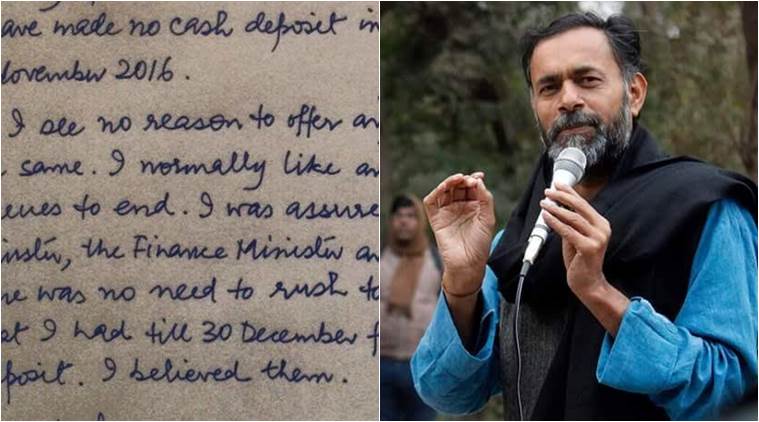 ave made no cash deposit in
November 2016.
I see no reason to offer an
same. I normally like
to end. I was assure
the Finance Minister
was no need to rush to
I had till 30 December f
posit. I believed them.